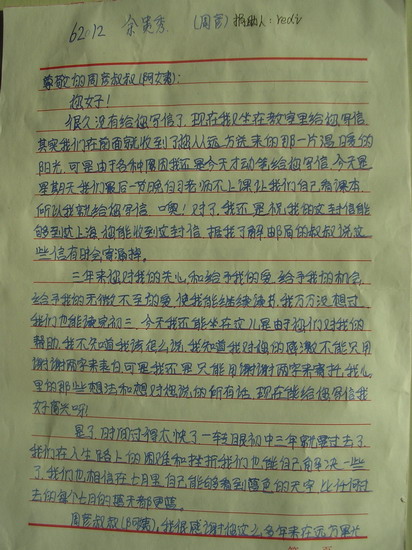 62:12 余贵秀 (周彦) 捐助人:redi
尊敬的周彦叔叔(阿姨):
您好!
很久没有给您写信了,现在我坐在教室里给您写信
其实我们在前面就收到了您从远方送来的那一片温暖的
阳光,可是由于各种原因我还是今天才动笔给您写信,今天是
星期天我们最后一节晚自习老师不上课让我们自己看课本
所以我就给您写信,噢!对了,我还是祝我的这封信能
够到达上海,您能收到这封信,据我了解由邮局的叔叔说这
些信有时会寄漏掉。
三年来您对我的关心,和给予我的爱,给予我的机会,
给予我的无微不至的爱,使我能继续读书,我万万没想过
我们也能读完初三,今天我还能坐在这儿是由于您们对我的
帮助,我不知道我该怎么说,我知道我对您的感激不能只用
谢谢两字来表力,可是我还是只能用谢谢两字来寄托,我心
里的那些想法和想对您说的所有话,现在能给您写信我
好高兴呀!
是了,时间过得不快了一转眼初中三年就要过去了,
我们在人生路上的困难和挫折我们也能自己解决一些
了,我们也相信在七月里自己能够看到蓝色的天空,比任何过
去的每个七月的蓝天都更蓝。
周彦叔叔(阿姨),我很感谢您这么多年来在远方里为